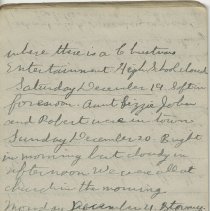 where there is a Christmas
Entertainment High School closed
Saturday December 19. Soft in
forenoon. Aunt Lizzie John
and Robert were in town
Sunday December 20. Bright
in morning but cloudy in
afternoon We were all at
church in the morning
Monday December 21 Stormy